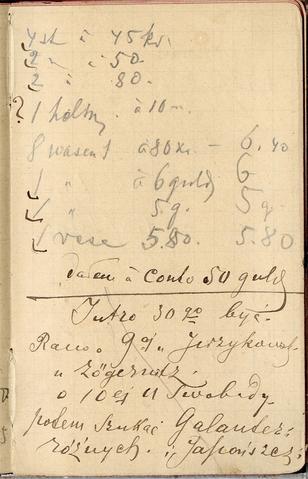 4 st à 45 kr.
2 " à 50.
2 " à 80.
? 1 holtz. à 10
8 wasen 1 à 80 x. – 6.40
1 " à 6 guld 6
1 " 5. g. 5 g.
1 vase 5.80. 5.80
dałem à conto 50 guld
Jutro 30 go być
Rano o 9 ej u Jerzykowsk
u Zögernitz.
o 10 ej u Swobody.
potem szukać Galanter
różnych. i Japońszcz